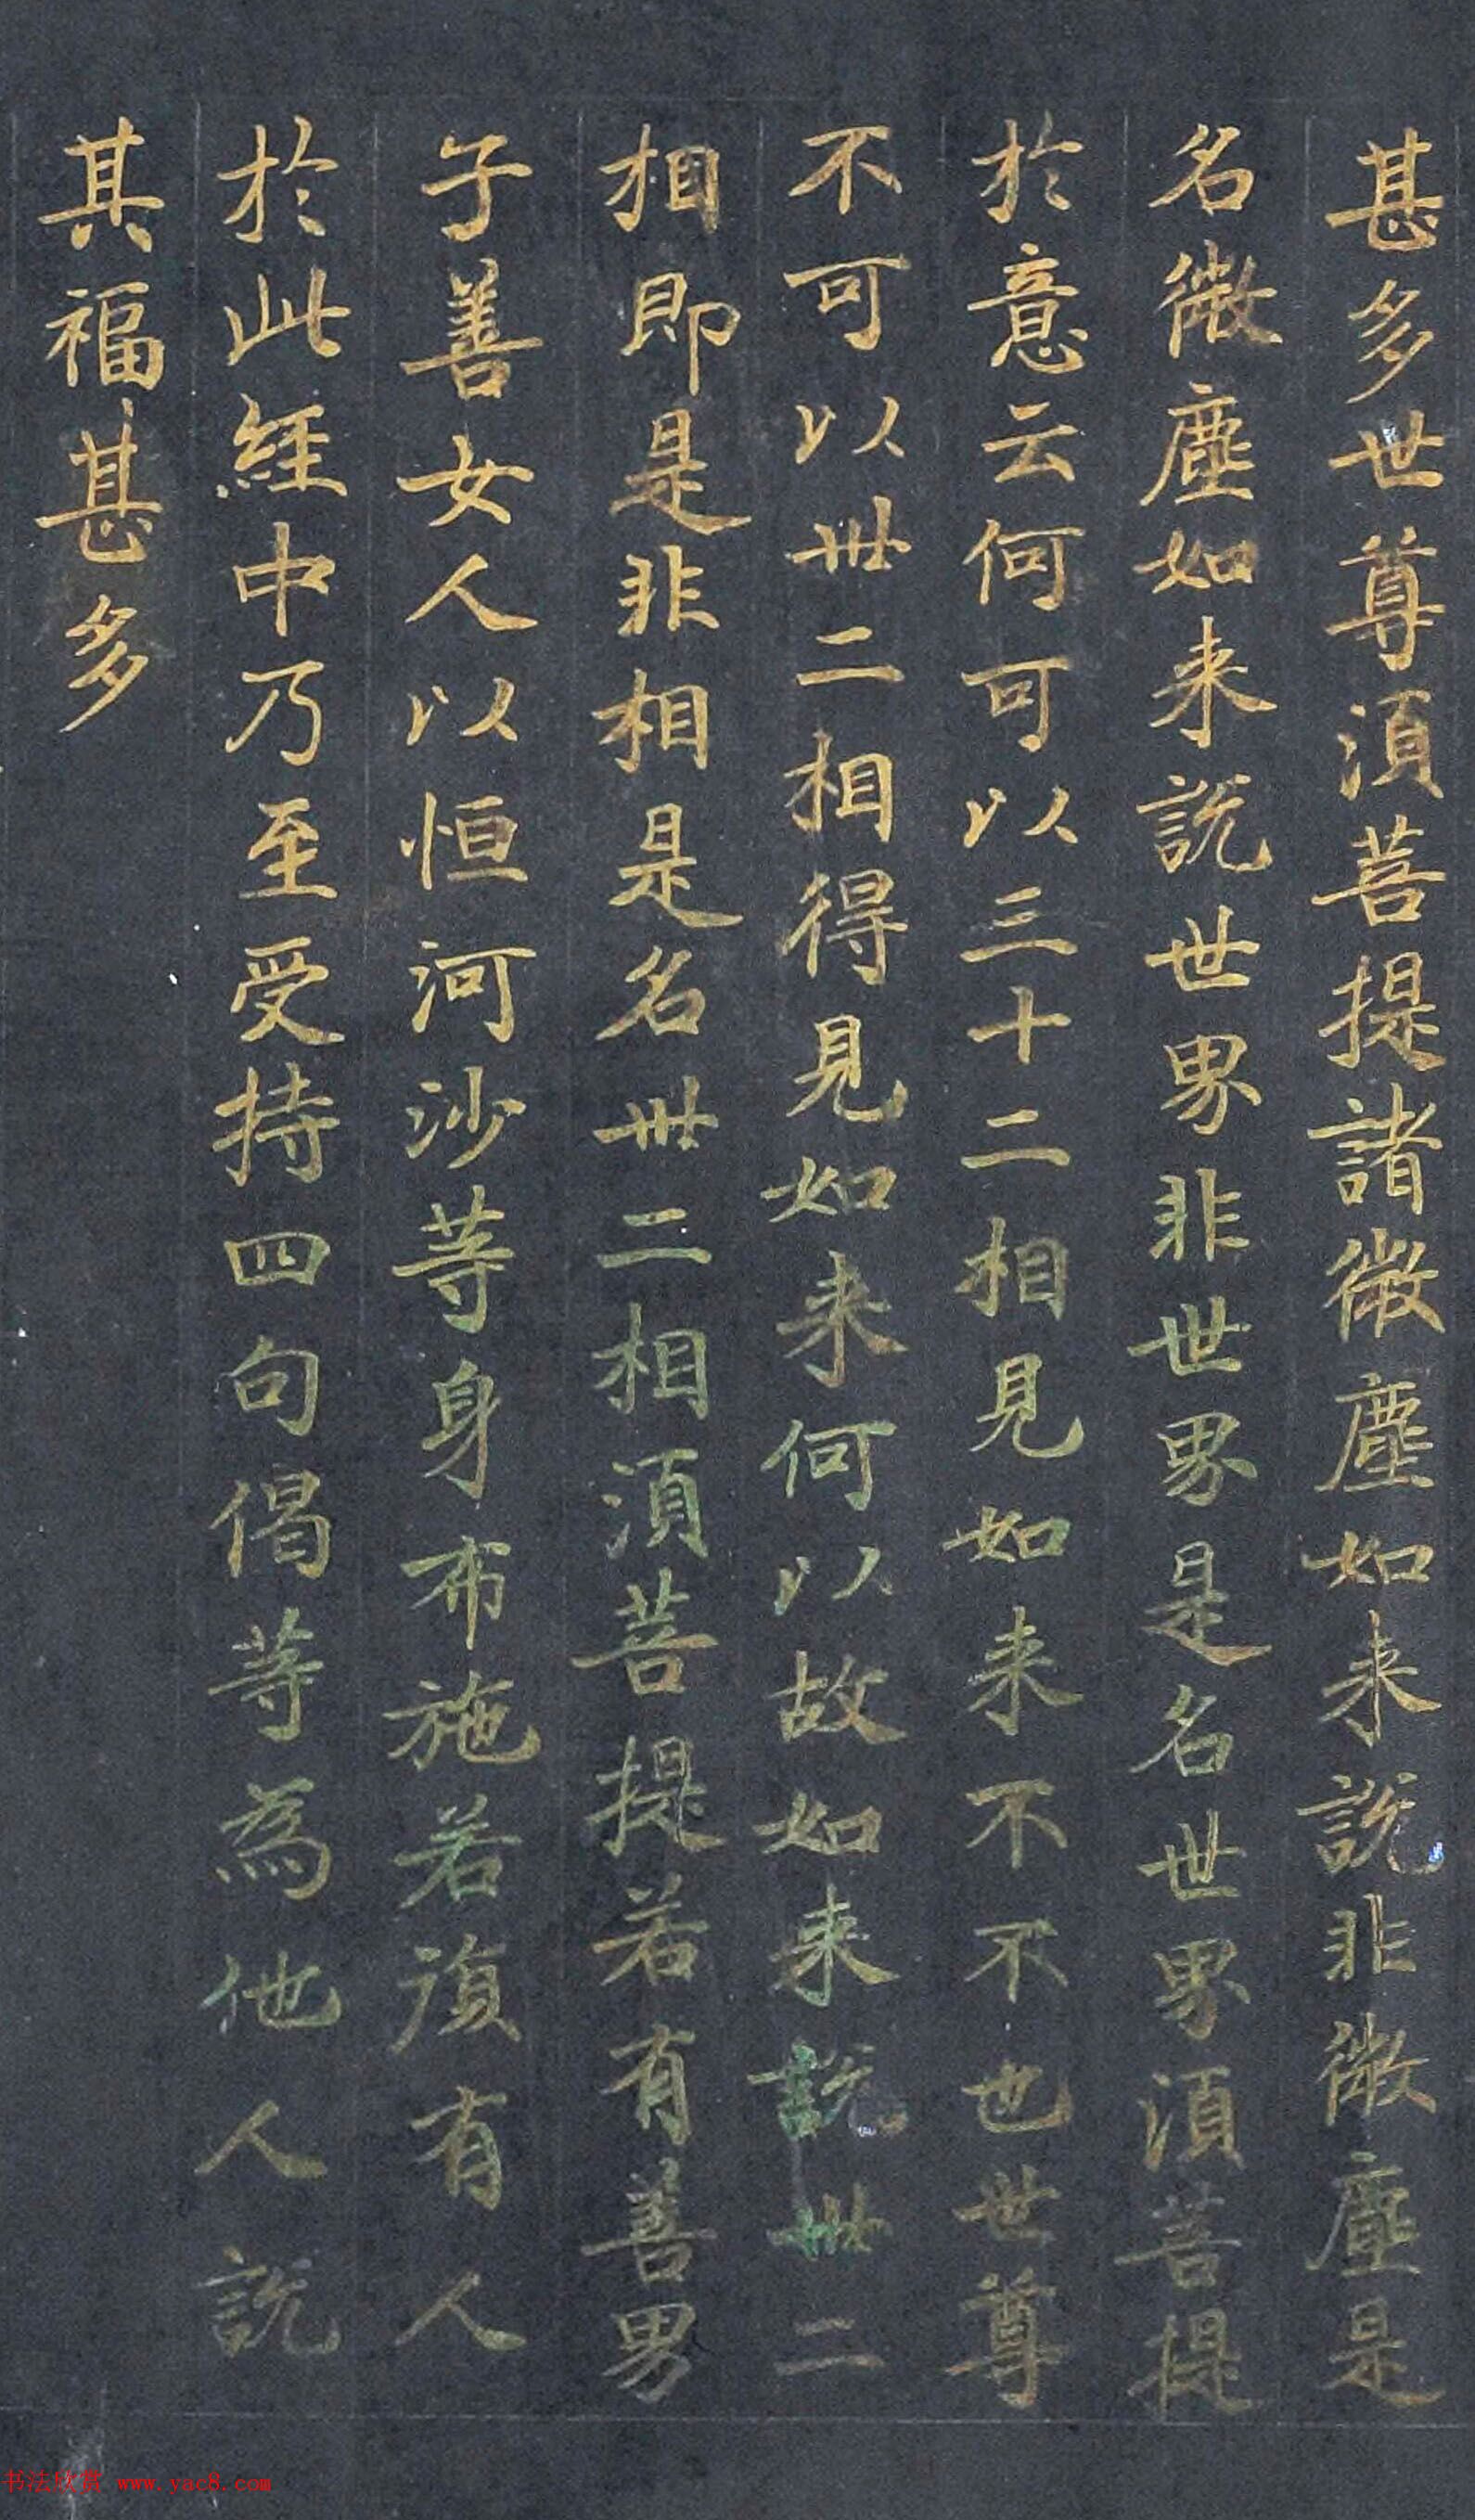 甚多世尊須菩提諸微塵如来說非微塵是
名微塵如来說世界非世界是名世界須菩提
於意云何可以三十二相見如来不不也世尊
不可以卅二相得見如来何以故如来說卅二
相即是非相是名卅二相須菩提若有善男
子善女人以恒河沙等身布施若復有人
於此經中乃至受持四句偈等為他人說
其福甚多
书法欣赏 www.yac8.com